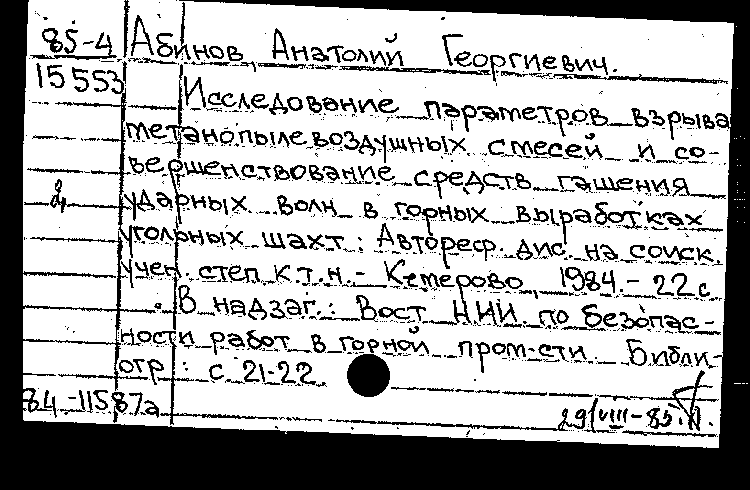 85-4 Абинов, Анатолий Георгиевич.
15553 Исследование параметров взрыва
метанопылевоздушных смесей и со-
вершенствование средств гашения
ударных волн в горных выработках
угольных шахт: Автореф. дис. на соиск.
учен. степ к.т.н. - Кемерово, 1984. - 22 с
В надзаг.: Вост НИИ. по безопас-
ности работ в горной пром-сти. Библи-
огр: с 21-22
84-11587а 29/VIII-85.